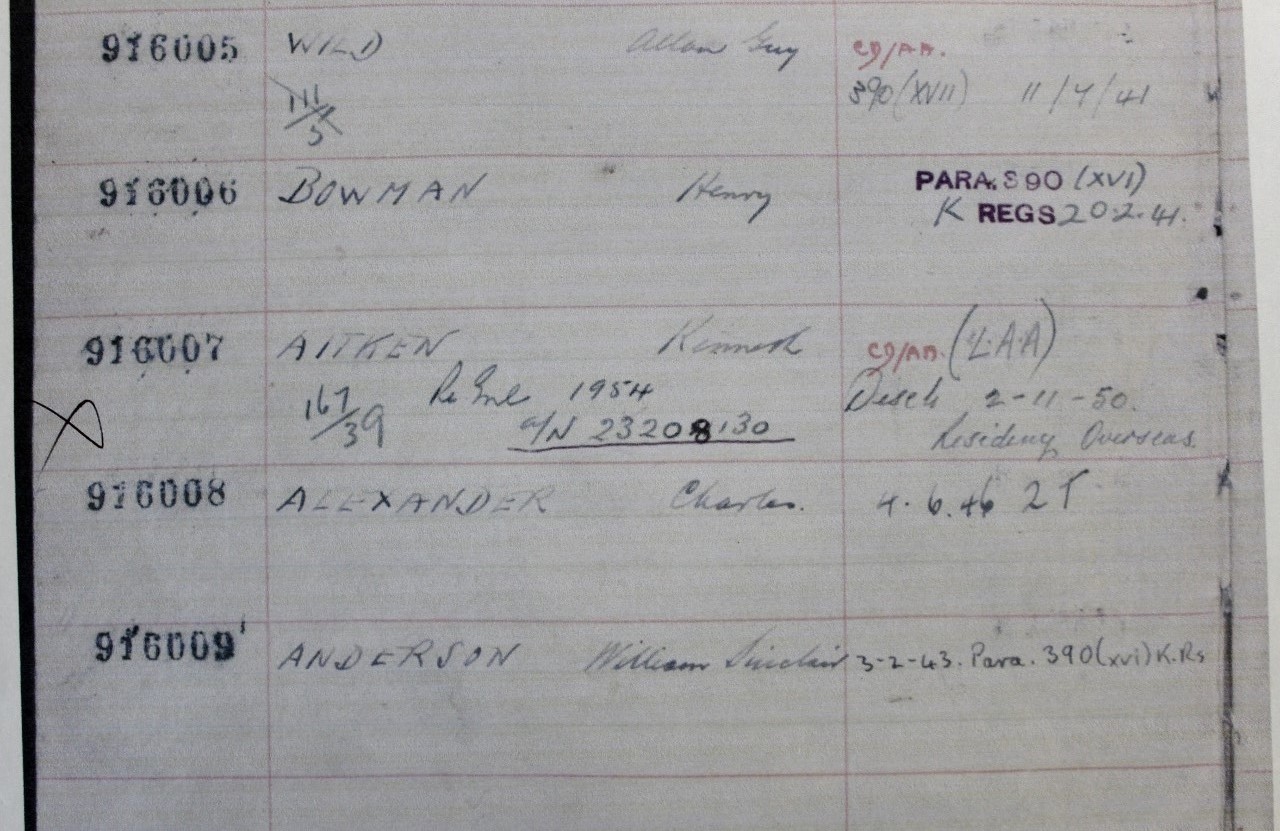 916005 WILD Allan Guy CD/AA.
111/5 390(XVII) 11/7/41
916006 BOWMAN Henry PARA. 390 (XVI)
K REGS 20.2.41.
916007 AITKEN Kenneth CD/AA. (L.A.A)
167/39 Re Enl 1954 Disch 2-11-50.
a/N 23208130 Residing Overseas
916008 ALEXANDER Charles. 4.6.46 2T
916009 ANDERSON William Sinclair 3-2-43. Para. 390(xvi) K.Rs